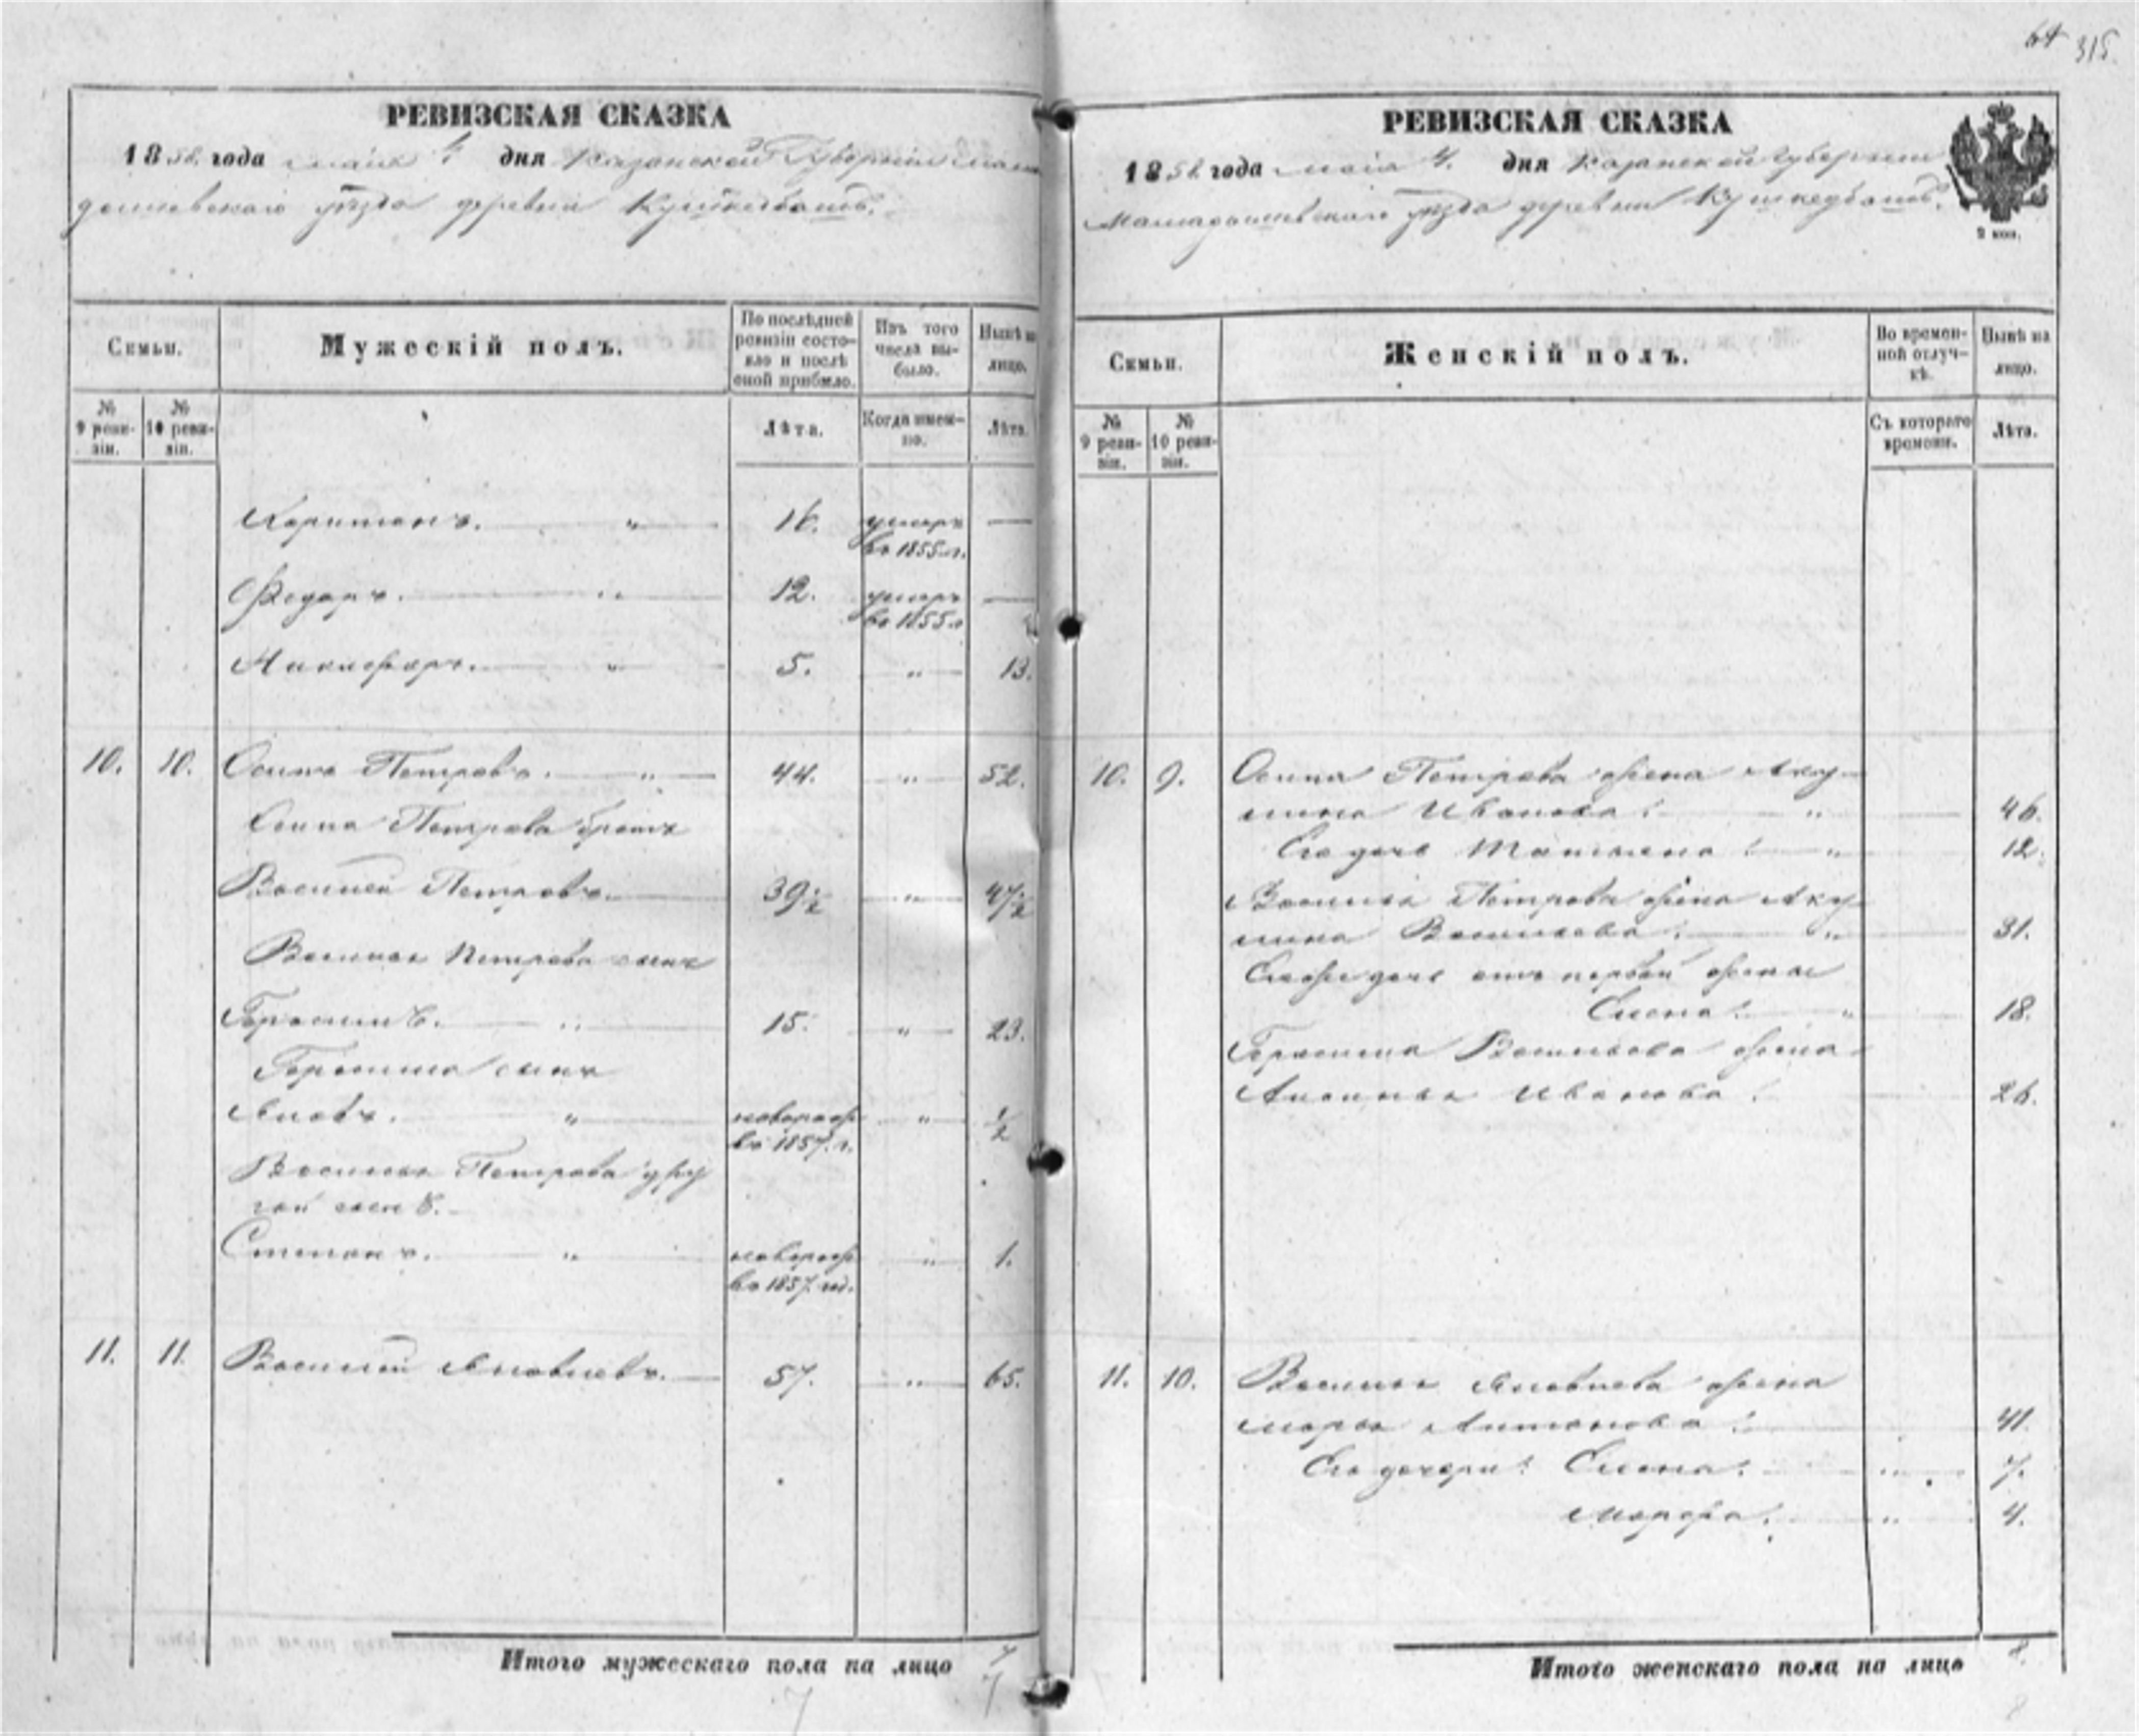 315
РЕВИЗСКАЯ СКАЗКА
1858 года маія 4. дня Казанской Губерніи Мама
дышевскаго уѣзда деревни
Семьи.
Мужескій полъ.
По послѣдней ревизіи состояло и послѣ оной прибыло.
Изъ того числа выбыло.
Нынѣ на лицо.
№ 9 ревизіи.
№ 10 ревизіи.
Лѣта.
Когда именно.
Лѣта.
Харитонъ. " 16. умеръ —
въ 1855 г.
Федоръ. " 12. умеръ —
въ 1855 г.
Никифоръ. " 5. " 13.
10. 10. Осипъ Петровъ. " 44. " 52.
Осипа Петрова братъ
Василей Петровъ. 39½ " 47½
Василья Петрова сынъ
Герасимъ. " 15. " 23.
Герасима сынъ
Яковъ. " новорож " ½
въ 1857. г.
Василья Петрова дру
гой сынъ.
Степанъ. " новорож " 1.
въ 1857. г.
11. 11. Василий Яковлевъ. 57. " 65.
Итого мужескаго пола на лицо 7
7
7
РЕВИЗСКАЯ СКАЗКА
1858 года маія 4. дня Казанской Губерніи
Мамадышевскаго уѣзда деревни
2 коп.
Семьи.
Женскій полъ.
Во временной отлучкѣ.
Нынѣ на лицо.
№ 9 ревизіи.
№ 10 ревизіи.
Съ котораго времени.
Лѣта.
10. 9. Осипа Петрова жена Аку-
лина Иванова. " 46.
Его дочь Татьяна. " 12.
Василья Петрова жена Аку-
лина Васильева. " 31.
Его же дочь отъ первой жены
Елена. " 18.
Герасима Васильева жена
Иванова. 26.
11. 10. Василья Яковлева жена
Марья Антонова. 41.
Его дочери: Елена. " 7.
Марфа. " 4.
Итого женскаго пола на лицо 8.
8